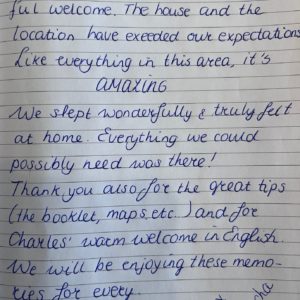 ful welcome. The house and the
location have exeeded our expectations
Like everything in this area, it's
AMAZING
We slept wonderfully & truly felt
at home. Everything we could
possibly need was there!
Thank you also for the great tips
(the booklet, maps etc..) and for
Charles' warm welcome in English.
We will be enjoying these memo-
ries for every.